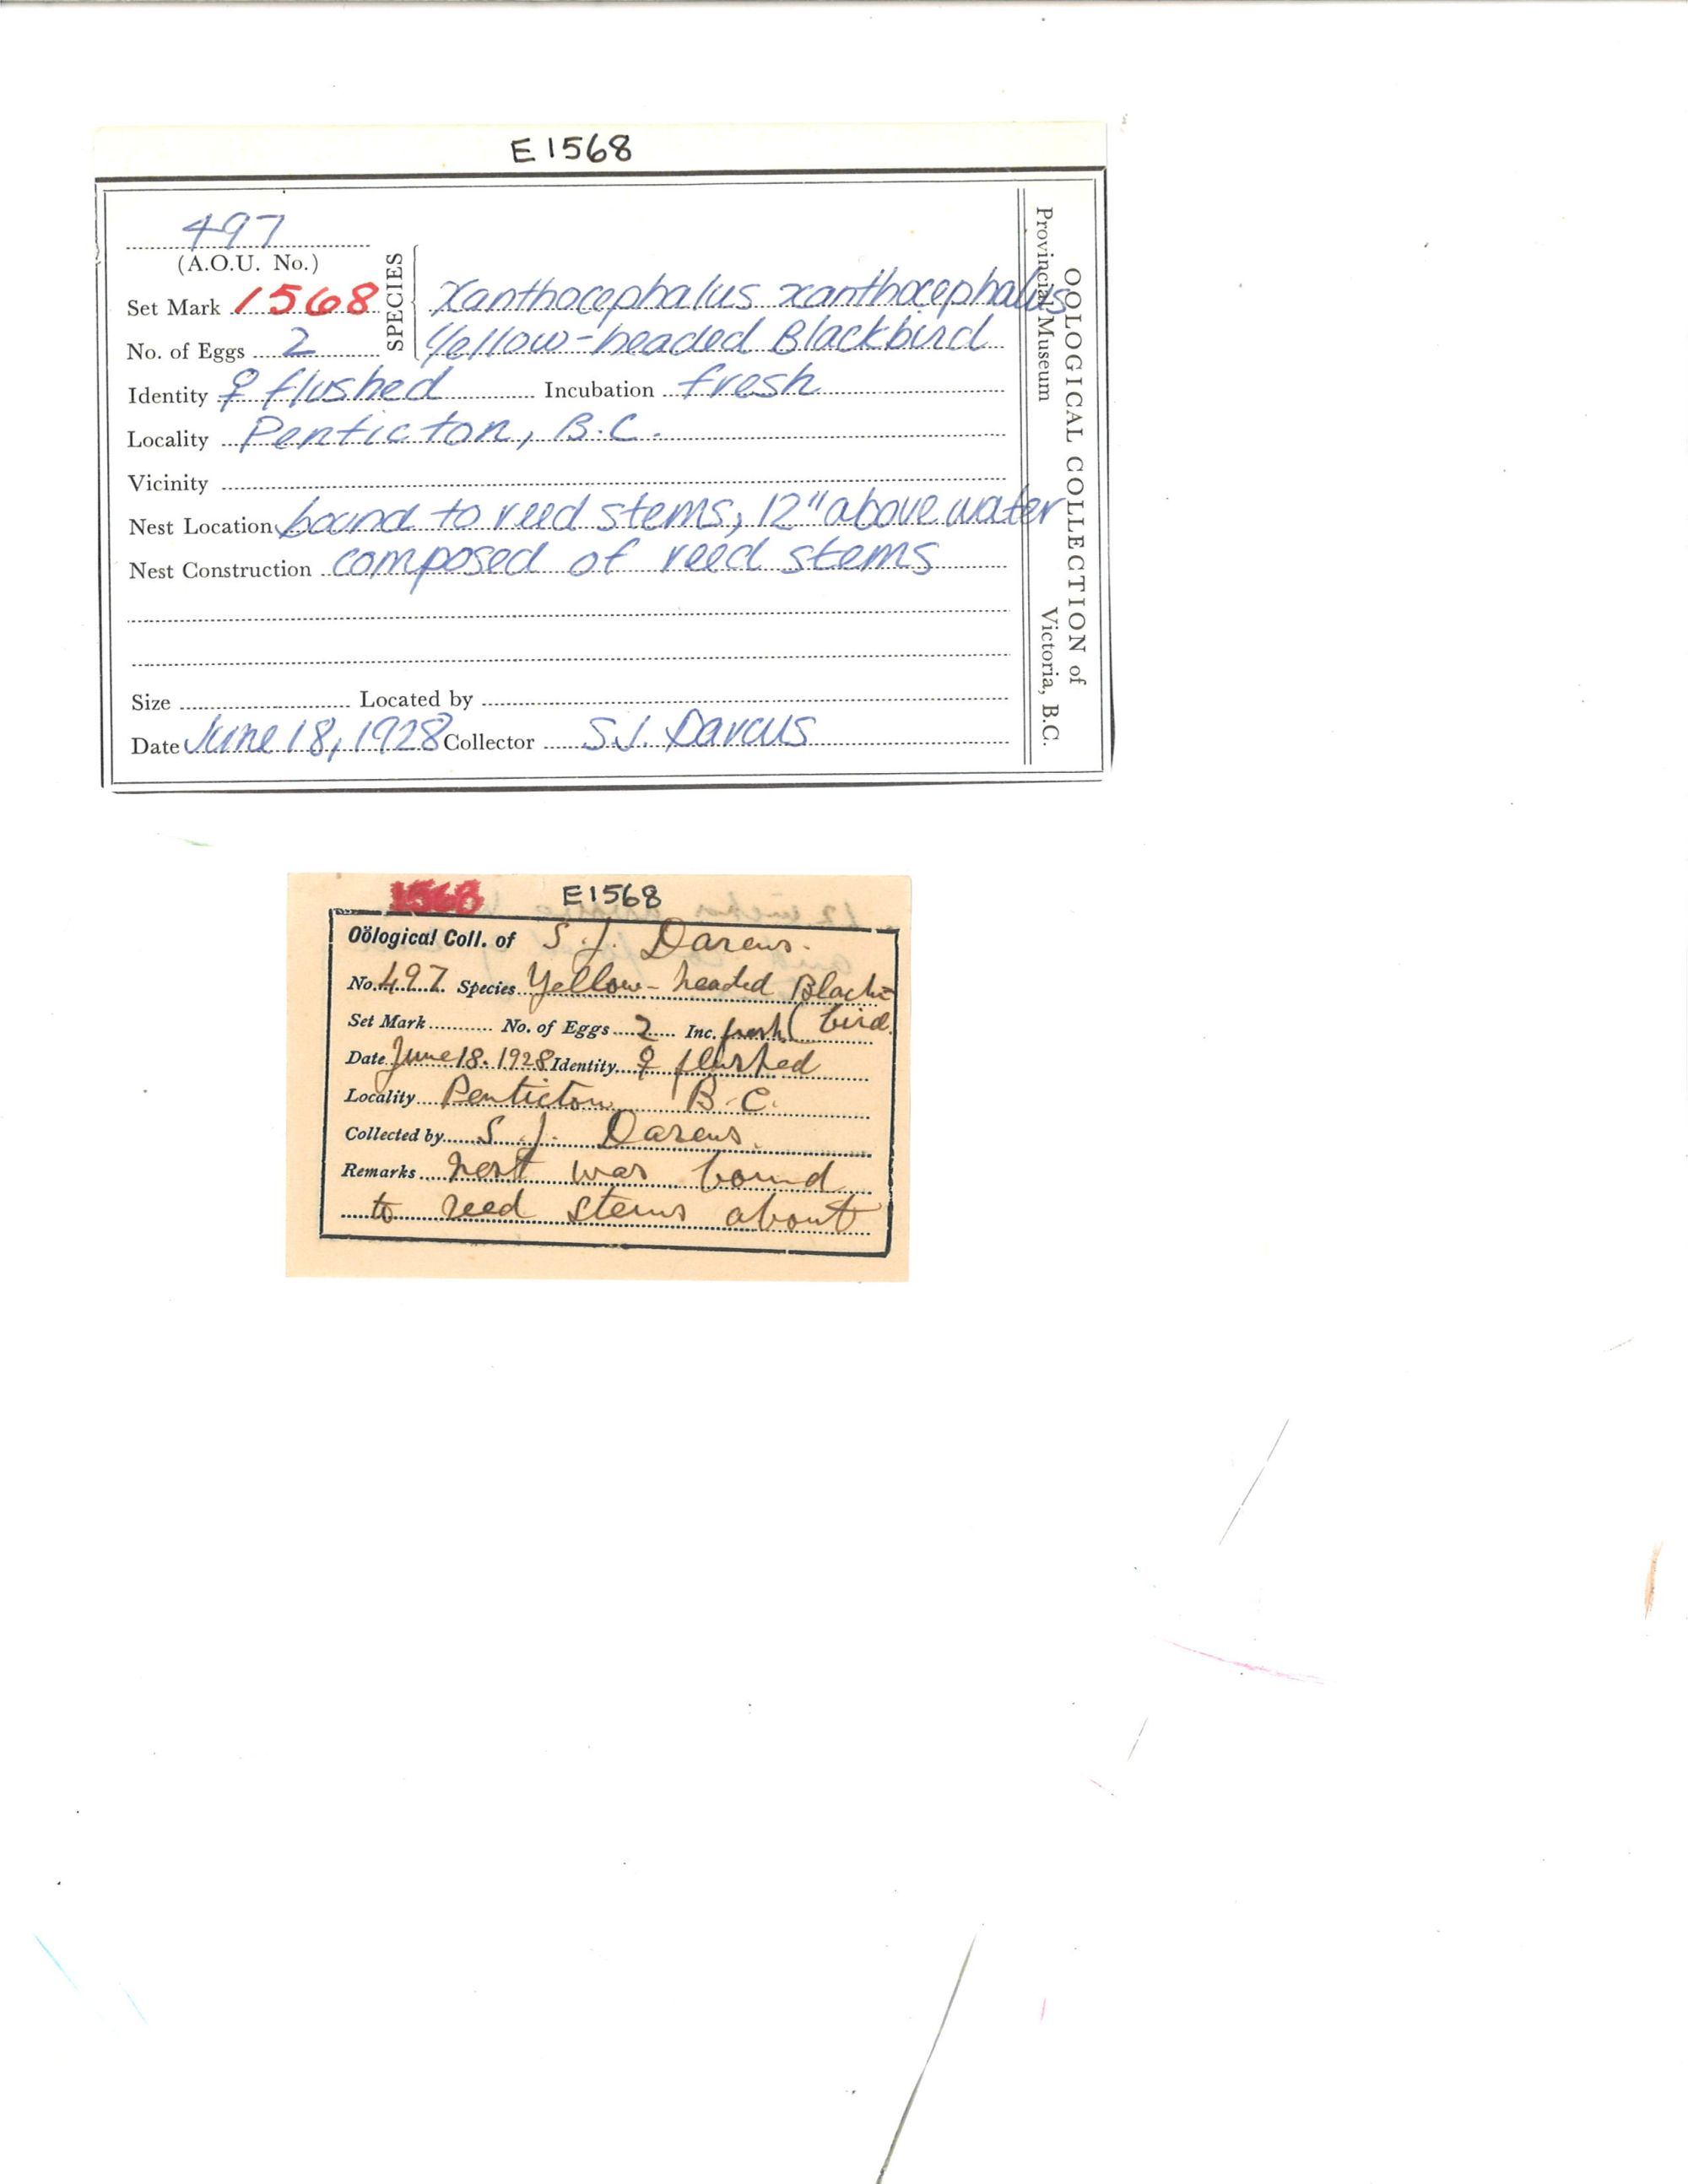 E1568
497
(A.O.U. No.)
SPECIES
Set Mark 1568 Xanthocephalus xanthocephalus
No. of Eggs 2 Yellow-headed Blackbird
Identity ♀ flushed Incubation fresh
Locality Penticton, B.C.
Vicinity
Nest Location bound to reed stems, 12" above water
Nest Construction composed of reed stems
Size Located by
Date June 18, 1928 Collector S.J. Darcus
OOLOGICAL COLLECTION of
Provincial Museum Victoria, B.C.
1568 E1568
Oölogical Coll. of S. J. Darcus.
No. 497. Species Yellow-headed Black-
Set Mark No. of Eggs 2 Inc. fresh (bird.
Date June 18. 1928 Identity ♀ flushed
Locality Penticton B.C.
Collected by S. J. Darcus.
Remarks nest was bound
to reed stems about